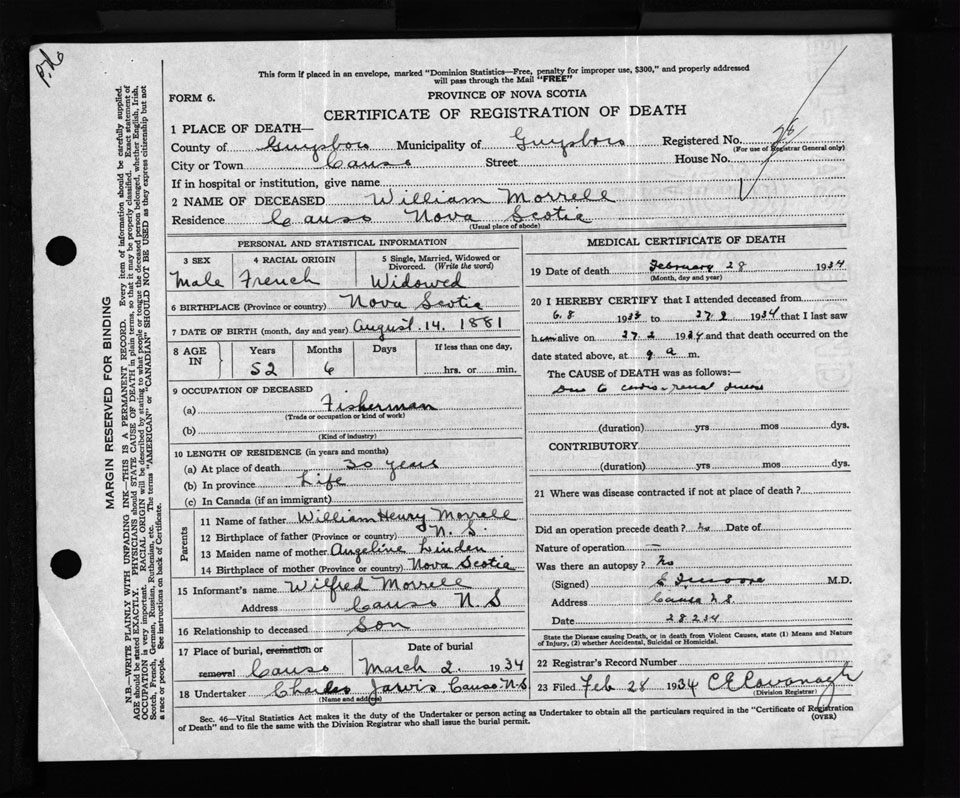 This form if placed in an envelope, marked "Dominion Statistics—Free, penalty for improper use, $300," and properly addressed
will pass through the Mail "FREE"
FORM 6.
PROVINCE OF NOVA SCOTIA
CERTIFICATE OF REGISTRATION OF DEATH
1 PLACE OF DEATH—
County of Guysboro Municipality of Guysboro Registered No. 28
(For use of Registrar General only)
City or Town Canso Street House No.
If in hospital or institution, give name
2 NAME OF DECEASED William Morrell
Residence Canso Nova Scotia
(Usual place of abode)
PERSONAL AND STATISTICAL INFORMATION
3 SEX
Male
4 RACIAL ORIGIN
French
5 Single, Married, Widowed or
Divorced. (Write the word)
Widowed
6 BIRTHPLACE (Province or country) Nova Scotia
7 DATE OF BIRTH (month, day and year) August. 14. 1881
8 AGE
IN
Years
52
Months
6
Days
If less than one day,
hrs. or min.
9 OCCUPATION OF DECEASED
(a) Fisherman
(Trade or occupation or kind of work)
(b)
(Kind of industry)
10 LENGTH OF RESIDENCE (in years and months)
(a) At place of death 30 years
(b) In province Life
(c) In Canada (if an immigrant)
Parents
11 Name of father William Henry Morrell
12 Birthplace of father (Province or country) N. S.
13 Maiden name of mother Angeline Linden
14 Birthplace of mother (Province or country) Nova Scotia
15 Informant's name Wilfred Morrell
Address Canso N.S
16 Relationship to deceased Son
17 Place of burial, cremation or
removal Canso
Date of burial
March 2. 1934
18 Undertaker Charles Jarvis Canso N.S
(Name and address)
MEDICAL CERTIFICATE OF DEATH
19 Date of death February 28 1934
(Month, day and year)
20 I HEREBY CERTIFY that I attended deceased from
6.8 193 to 27.2 1934 that I last saw
him alive on 27.2 1934 and that death occurred on the
date stated above, at 9 a m.
The CAUSE of DEATH was as follows:—
Due to cardio-renal disease
(duration) yrs mos dys.
CONTRIBUTORY
(duration) yrs mos dys.
21 Where was disease contracted if not at place of death?
Did an operation precede death? no Date of
Nature of operation —
Was there an autopsy? No
(Signed) M.D.
Address Canso N.S.
Date 28 2 34
State the Disease causing Death, or in death from Violent Causes, state (1) Means and Nature
of Injury, (2) whether Accidental, Suicidal or Homicidal.
22 Registrar's Record Number
23 Filed Feb 28 1934 C E Cavanagh
(Division Registrar)
Sec. 46—Vital Statistics Act makes it the duty of the Undertaker or person acting as Undertaker to obtain all the particulars required in the "Certificate of Registration
of Death" and to file the same with the Division Registrar who shall issue the burial permit.
(OVER)
MARGIN RESERVED FOR BINDING
N.B.—WRITE PLAINLY WITH UNFADING INK—THIS IS A PERMANENT RECORD. Every item of information should be carefully supplied.
AGE should be stated EXACTLY. PHYSICIANS should STATE CAUSE OF DEATH in plain terms, so that it may be properly classified. Exact statement of
OCCUPATION is very important. RACIAL ORIGIN will be described by stating to what people or tongue the deceased person belonged, whether English, Irish,
Scotch, French, German, Russian, Ruthenian, etc. The terms "AMERICAN" or "CANADIAN" SHOULD NOT BE USED as they express citizenship but not
a race or people. See instructions on back of Certificate.